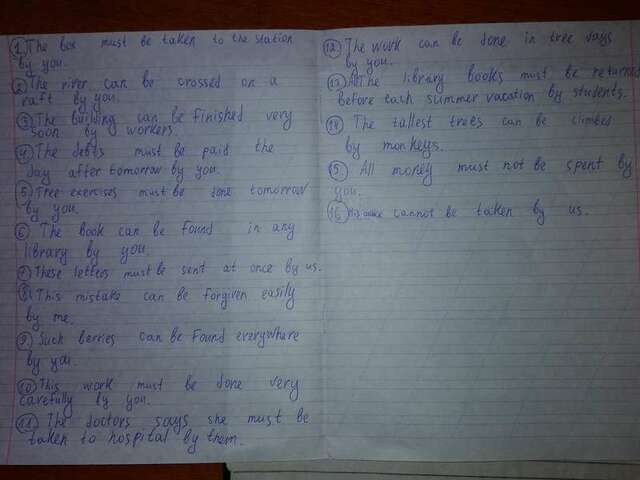 1 The box must be taken to the station
by you.
2 The river can be crossed on a
raft by you.
3 The building can be finished very
soon by workers.
4 The debts must be paid the
day after tomorrow by you.
5 Tree exercises must be done tomorrow
by you.
6 The book can be found in any
library by you.
7 These letters must be sent at once by us.
8 This mistake can be forgiven easily
by me.
9 Such berries can be found everywhere
by you.
10 This work must be done very
carefully by you.
11 The doctors says she must be
taken to hospital by them.
12 The work can be done in tree days
by you.
13 All The library books must be returne
before each summer vacation by students.
14 The tallest trees can be climbed
by monkeys.
15 All money must not be spent by
you.
16 cannot be taken by us.